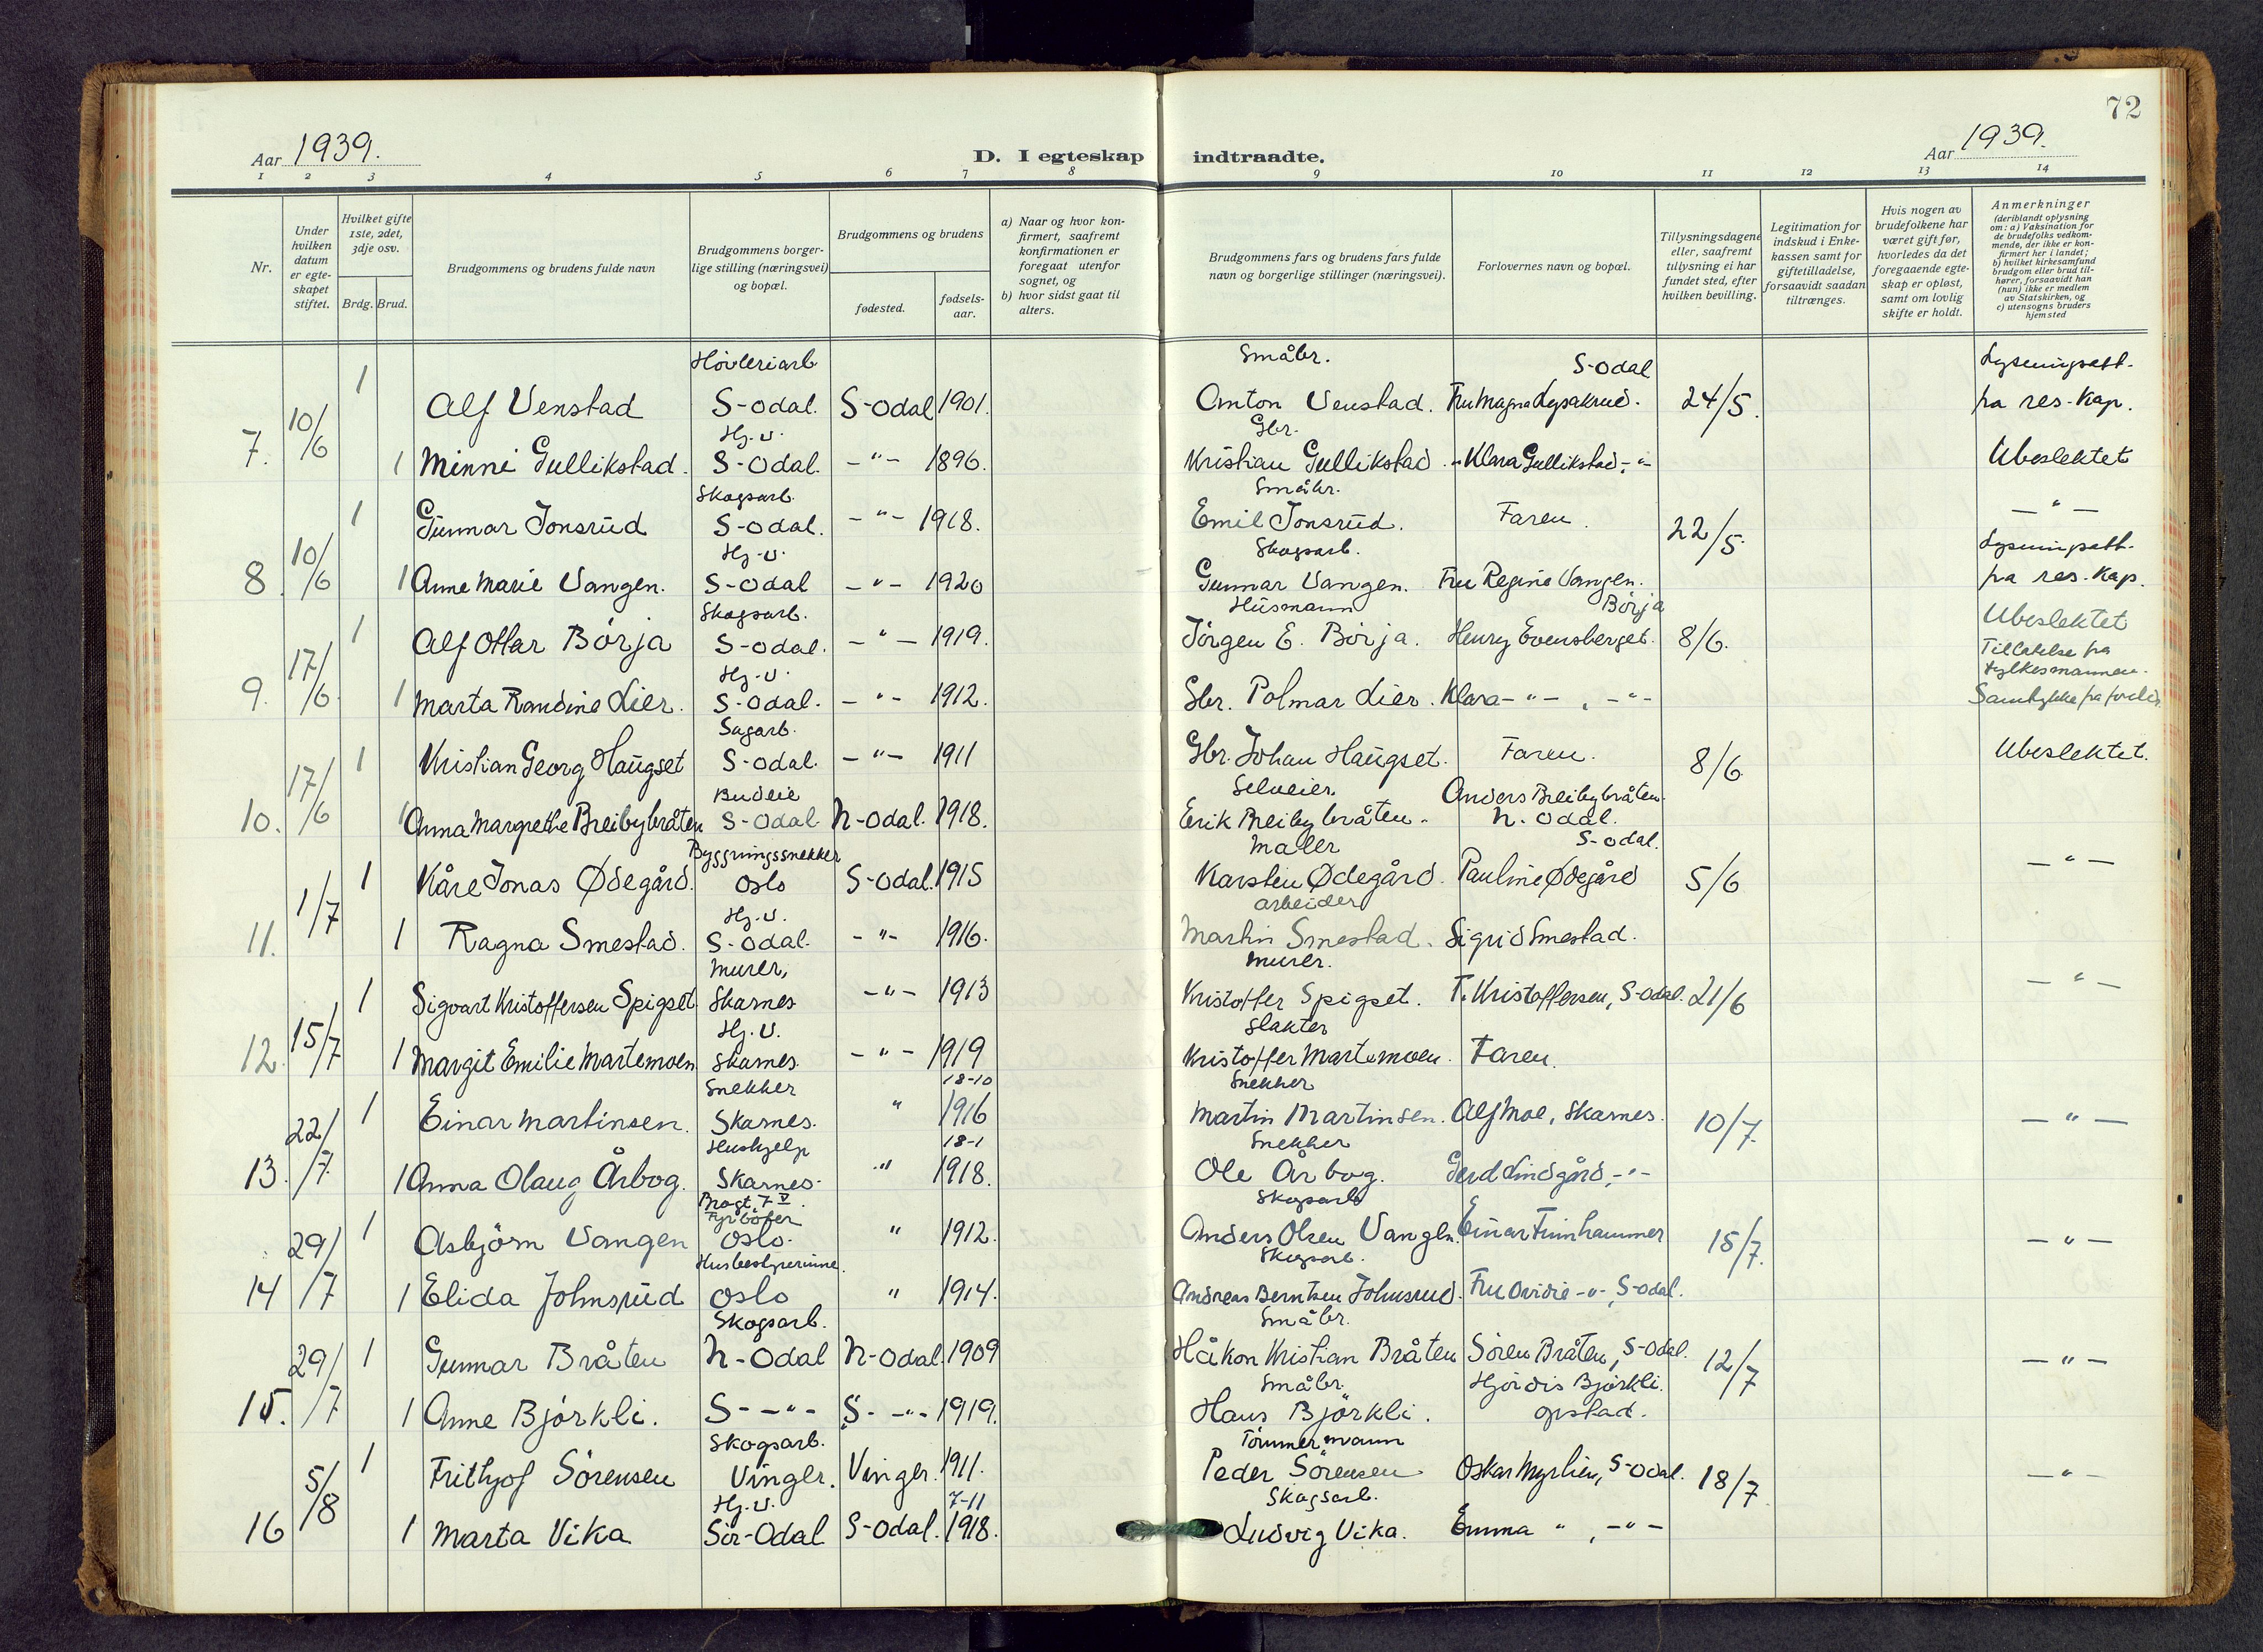 72
Aar 1939.
D. I egteskap indtraadte.
Aar 1939.
1 2 3 4 5 6 7 8 9 10 11 12 13 14
Nr.
Under hvilken datum er egteskapet stiftet.
Hvilket gifte 1ste, 2det, 3dje osv.
Brdg. Brud.
Brudgommens og brudens fulde navn
Brudgommens borgerlige stilling (næringsvei) og bopæl.
Brudgommens og brudens
fødested.
fødselsaar.
a) Naar og hvor konfirmert, saafremt konfirmationen er foregaat utenfor sognet, og
b) hvor sidst gaat til alters.
Brudgommens fars og brudens fars fulde navn og borgerlige stillinger (næringsvei).
Forlovernes navn og bopæl.
Tillysningsdagene eller, saafremt tillysning ei har fundet sted, efter hvilken bevilling.
Legitimation for indskud i Enkekassen samt for giftetilladelse, forsaavidt saadan tiltrænges.
Hvis nogen av brudefolkene har været gift før, hvorledes da det foregaaende egteskap er opløst, samt om lovlig skifte er holdt.
Anmerkninger
(deriblandt oplysning om: a) Vaksination for de brudefolks vedkommende, der ikke er konfirmert her i landet;
b) hvilket kirkesamfund brudgom eller brud tilhører, forsaavidt han (hun) ikke er medlem av Statskirken, og
c) utensogns bruders hjemsted
Høvleriarb Småbr. S-Odal Lysningsatt.
1 Alf Venstad S-Odal. S-Odal 1901. Anton Venstad. Fru Magna Lysakrud. 24/5. fra res. Kap.
7. 10/6 Hj.v. Gbr.
1 Minni Gullikstad. S-Odal. -"- 1896. Kristian Gullikstad. " Klara Gullikstad, -"- Ubeslektet
Skogsarb. Småbr.
1 Gunnar Jonsrud S-Odal. -"- 1918. Emil Jonsrud. Faren. 22/5. -"-
8. 10/6 Hj.v. Skogsarb. Lysningsatt.
1 Anne Marie Vangen. S-Odal -"- 1920 Gunnar Vangen. Fru Regine Vangen. fra res. Kap.
Skogsarb. Husmann Børja Ubeslektet
1 Alf Ottar Børja S-Odal. -"- 1919. Jörgen E. Børja. Henry Evensberget. 8/6. Tillatelse fra
9. 17/6. Hj.v. fylkesmannen.
1 Marta Randine Lier. S-Odal. -"- 1912. Gbr. Polmar Lier. Klara -"-, -"- Samtykke fra foreldr.
Sagarb.
1 Kristian Georg Haugset S-Odal. -"- 1911 Gbr. Johan Haugset. Faren. 8/6. Ubeslektet.
10. 17/6 Budeie Selveier. Anders Breibybråten
1 Anna Margrethe Breibybråten S-Odal N-Odal. 1918. Erik Breibybråten. N. Odal.
Byggningssnekker Maler S-Odal.
1 Kåre Jonas Ødegård. Oslo S-Odal. 1915 Karsten Ødegård. Pauline Ødegård 5/6 -"-
11. 1/7 Hj.v. arbeider
1 Ragna Smestad. S-Odal. -"- 1916. Martin Smestad. Sigrid Smestad.
Murer, Murer.
1 Sigvart Kristoffersen Spigset Skarnes -"- 1913 Kristoffer Spigset. T. Kristoffersen, S-Odal. 21/6 -"-
12. 15/7 Hj.v. Slakter
1 Margit Emilie Martemoen Skarnes. -"- 1919 Kristoffer Martemoen. Faren.
Snekker 18-10 Snekker
1 Einar Martinsen. Skarnes. " 1916 Martin Martinsen. Alf Moe, Skarnes. 10/7. -"-
13. 22/7 Hushjelp 18-1 Snekker
1 Anna Olaug Årbog. Skarnes. " 1918. Ole Årbog. Gerd Lindgård, -"-
Fyrbøter Skogsarb
1 Asbjörn Vangen Oslo. " 1912. Anders Olsen Vangen. Einar Finnhammer 15/7. -"-
14 29/7 Husbestyrerinne. Skogsarb.
1 Elida Johnsrud Oslo " 1914. Andreas Berntsen Johnsrud. Fru Ovidie -"-, S-Odal.
Skogsarb. Småbr.
1 Gunnar Bråten N-Odal N-Odal. 1909 Håkon Kristian Bråten Sören Bråten, S-Odal. 12/7 -"-
15. 29/7 Småbr. Hjördis Björkli.
1 Anne Björkli. S- -"- S- -"- 1919. Hans Björkli. Opstad.
Skogsarb. Tömmermann
1 Frithjof Sörensen Vinger. Vinger. 1911. Peder Sörensen Oskar Myrlien, S-Odal. 18/7 -"-
16 5/8 Hj.v. 7-11 Skogsarb.
1 Marta Vika Sör-Odal S-Odal. 1918. Ludvig Vika. Emma ", -"-